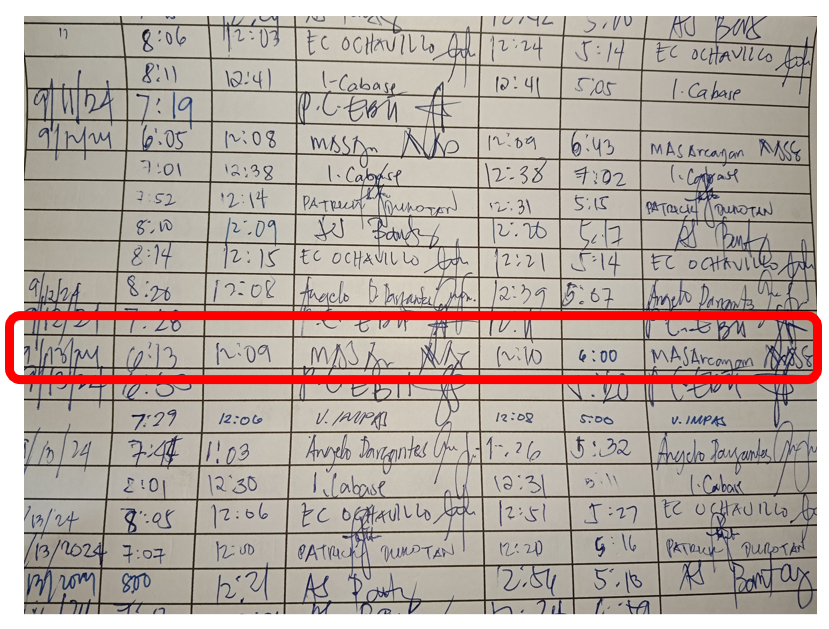 12:42 5:00 AS Ban
" 8:06 12:03 EC OCHAVILLO 12:24 5:14 EC OCHAVILLO
8:11 12:41 I. Cabase 12:41 5:05 I. Cabase
9/11/24 7:19 P.C. EBII
9/12/24 6:05 12:08 12:09 6:43 MASArcanan
7:01 12:38 I. Cabase 12:38 7:02 I. Cabase
7:52 12:14 PATRICK DUROTAN 12:31 5:15 PATRICK DUROTAN
8:10 12:09 AS 12:20 5:17 AS
8:14 12:15 EC OCHAVILLO 12:21 5:14 EC OCHAVILLO
9/12/24 8:20 12:08 Angelo Dargantes 12:39 5:07 Angelo Dargantes
9/12/24 7:20 P.C. EBII P.C. EBII
9/13/24 6:13 12:09 12:10 6:00 MASArcanan
9/13/24 6:55 P.C. EBII 5:20 P.C. EBII
7:29 12:06 V. IMPAS 12:08 5:00 V. IMPAS
/13/24 7:45 1:03 Angelo Dargantes 1:26 5:32 Angelo Dargantes
8:01 12:30 I. Cabase 12:31 5:11 I. Cabase
/13/24 8:05 12:06 EC OCHAVILLO 12:51 5:27 EC OCHAVILLO
/13/2024 7:07 12:00 PATRICK DUROTAN 12:20 5:16 PATRICK DUROTAN
13/2024 8:00 12:21 AS 12:54 5:18 AS Bantay